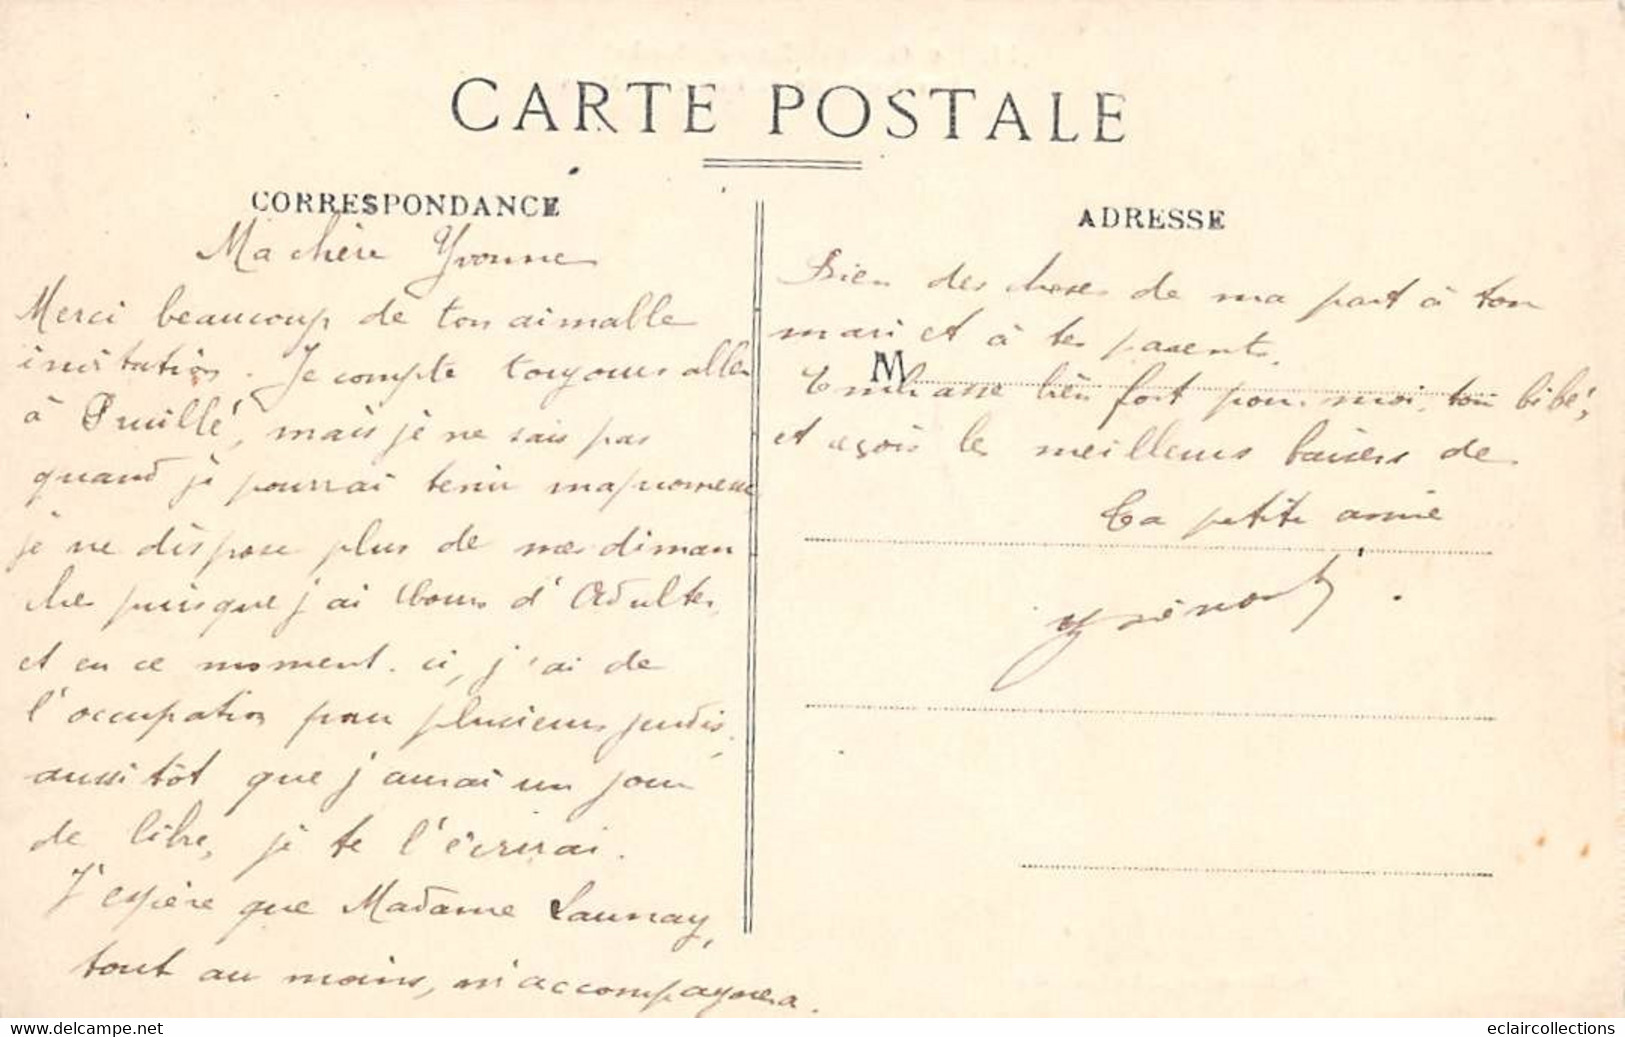 CARTE POSTALE
CORRESPONDANCE
Ma chère Yvonne
Merci beaucoup de ton aimable
invitation. Je compte toujours aller
à Pruillé, mais je ne sais pas
quand je pourrai tenir ma promesse
je ne dispose plus de mes diman
ches puisque j'ai Cours d'Adultes,
et en ce moment. ci, j'ai de
l'occupation pour plusieurs jeudis,
aussitôt que j'aurai un jour
de libre, je te l'écrirai.
J'espère que Madame Launay,
tout au moins, m'accompagnera.
ADRESSE
Bien des choses de ma part à ton
mari et à tes parents.
M
Embrasse bien fort pour moi, ton bébé,
et reçois les meilleurs baisers de
Ta petite amie
delcampe.net
eclaircollections